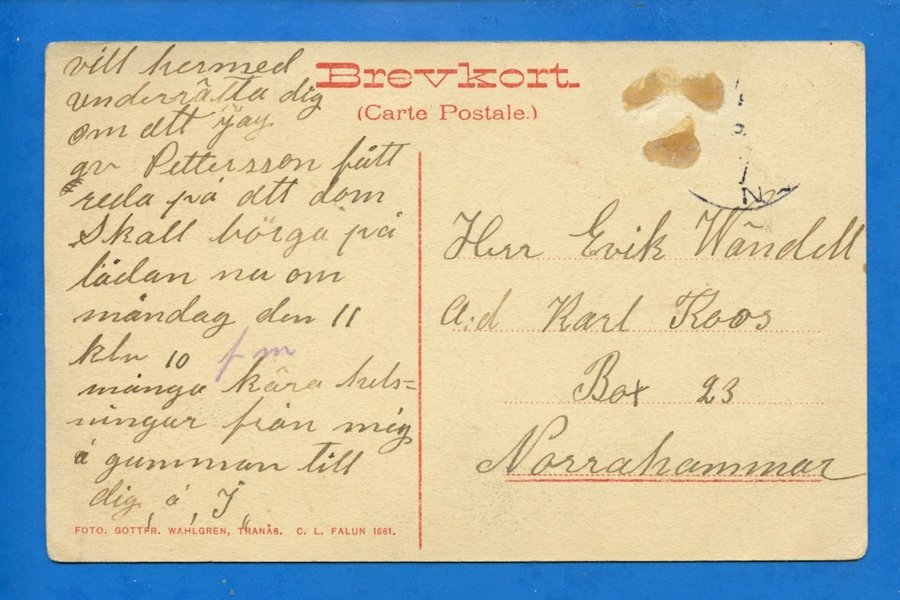 Brevkort.
(Carte Postale.)
vill hermed
underrätta dig
om att jag
av Pettersson fått
reda på att dom
Skall börga på
lådan nu om
måndag den 11
klu 10 f m
många kära hels=
ningar från mig
å gumman till
dig, å, J,,
Herr Erik Wändell
a:d Karl Koos
Box 23
Norrahammar
FOTO. GOTTFR. WAHLGREN, TRANÅS. C. L. FALUN 1661.